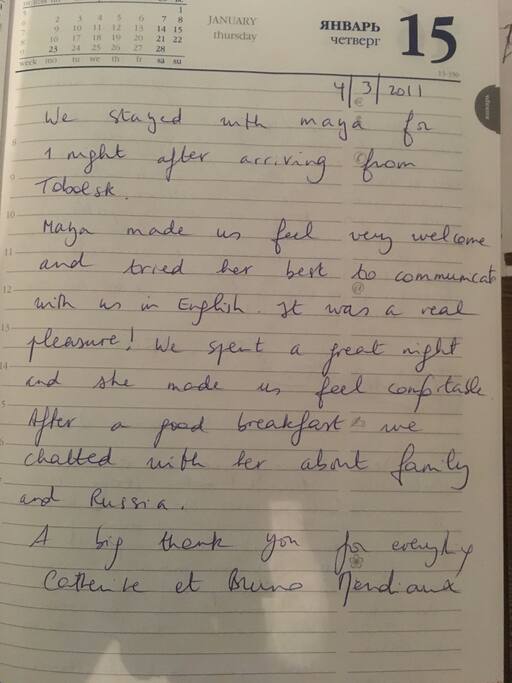 1
2 3 4 5 6 7 8
9 10 11 12 13 14 15
16 17 18 19 20 21 22
23 24 25 26 27 28
week mo tu we th fr sa su
JANUARY
thursday
ЯНВАРЬ
четверг
15
15-350
январь
4/3/2011
We stayed with maya for
1 night after arriving from
Tobolsk.
Maya made us feel very welcome
and tried her best to communicate
with us in English. It was a real
pleasure! We spent a great night
and she made us feel confortable.
After a good breakfast we
chatted with her about family
and Russia.
A big thank you for everything
Catherine et Bruno